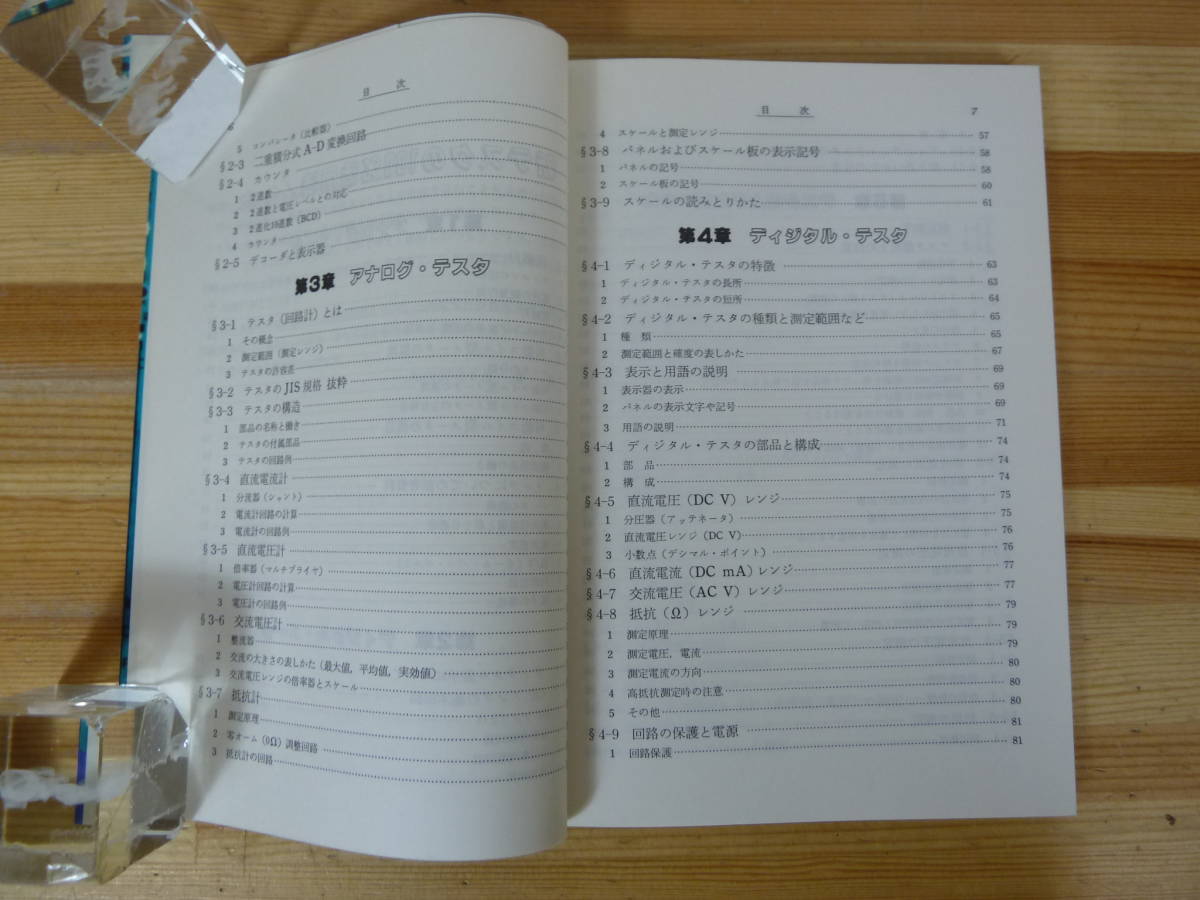 目 次
5 コンパレータ（比較器）
§2-3 二重積分式 A-D 変換回路
§2-4 カウンタ
1 2進数
2 2進数と電圧レベルとの対応
3 2進化10進数（BCD）
4 カウンター
§2-5 デコーダと表示器
第3章 アナログ・テスタ
§3-1 テスタ（回路計）とは
1 その概念
2 測定範囲（測定レンジ）
3 テスタの許容差
§3-2 テスタの JIS 規格 抜粋
§3-3 テスタの構造
1 部品の名称と働き
2 テスタの付属部品
3 テスタの回路例
§3-4 直流電流計
1 分流器（シャント）
2 電流計回路の計算
3 電流計の回路例
§3-5 直流電圧計
1 倍率器（マルチプライヤ）
2 電圧計回路の計算
3 電圧計の回路例
§3-6 交流電圧計
1 整流器
2 交流の大きさの表しかた（最大値，平均値，実効値）
3 交流電圧レンジの倍率器とスケール
§3-7 抵抗計
1 測定原理
2 零オーム（0Ω）調整回路
3 抵抗計の回路
目 次 7
4 スケールと測定レンジ 57
§3-8 パネルおよびスケール板の表示記号 58
1 パネルの記号 58
2 スケール板の記号 60
§3-9 スケールの読みとりかた 61
第4章 ディジタル・テスタ
§4-1 ディジタル・テスタの特徴 63
1 ディジタル・テスタの長所 63
2 ディジタル・テスタの短所 64
§4-2 ディジタル・テスタの種類と測定範囲など 65
1 種 類 65
2 測定範囲と確度の表しかた 67
§4-3 表示と用語の説明 69
1 表示器の表示 69
2 パネルの表示文字や記号 69
3 用語の説明 71
§4-4 ディジタル・テスタの部品と構成 74
1 部 品 74
2 構 成 74
§4-5 直流電圧（DC V）レンジ 75
1 分圧器（アッテネータ） 75
2 直流電圧レンジ（DC V） 76
3 小数点（デシマル・ポイント） 76
§4-6 直流電流（DC mA）レンジ 77
§4-7 交流電圧（AC V）レンジ 77
§4-8 抵抗（Ω）レンジ 79
1 測定原理 79
2 測定電圧，電流 79
3 測定電流の方向 80
4 高抵抗測定時の注意 80
5 その他 80
§4-9 回路の保護と電源 81
1 回路保護 81